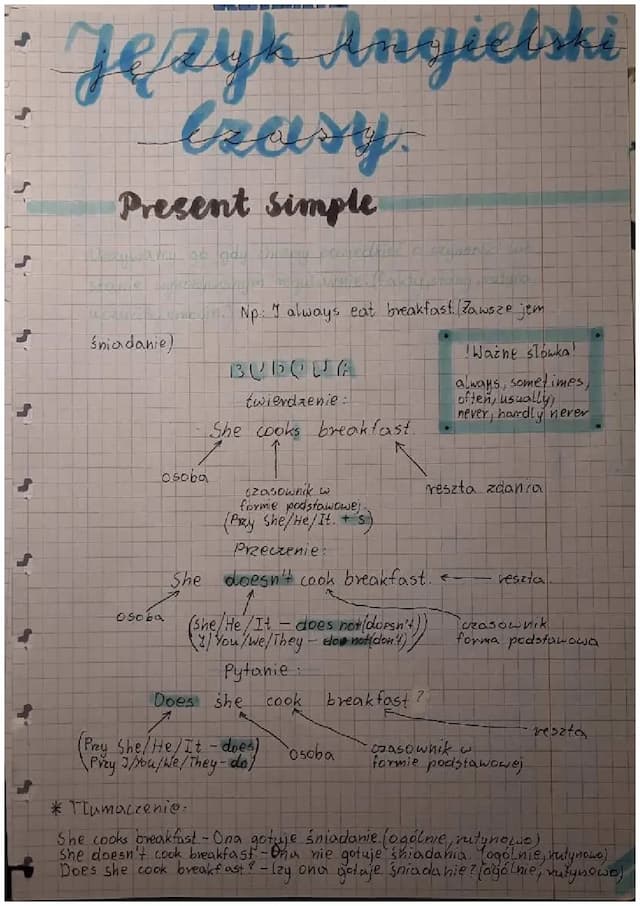 Język Angielski
Czasy.
Present Simple
Używamy go gdy chcemy powiedzieć o
regularnie
Np: I always eat breakfast. (Zawsze jem
śniadanie)
BUDOWA
!Ważne słówka!
always, sometimes,
often, usually,
never, hardly never
twierdzenie:
She cooks breakfast.
osoba
czasownik w
formie podstawowej.
(Przy She/He/It. + s)
reszta zdania
Przeczenie:
She doesn't cook breakfast. reszta
osoba
(She/He/It - does not (doesn't))
(I/You/We/They - do not (don't))
czasownik
forma podstawowa
Pytanie:
Does she cook breakfast?
reszta
(Przy She/He/It - does)
(Przy I/You/We/They - do)
osoba
czasownik w
formie podstawowej
* Tłumaczenie:
She cooks breakfast - Ona gotuje śniadanie. (ogólnie, rutynowo)
She doesn't cook breakfast - Ona nie gotuje śniadania. (ogólnie, rutynowo)
Does she cook breakfast? - Czy ona gotuje śniadanie? (ogólnie, rutynowo)